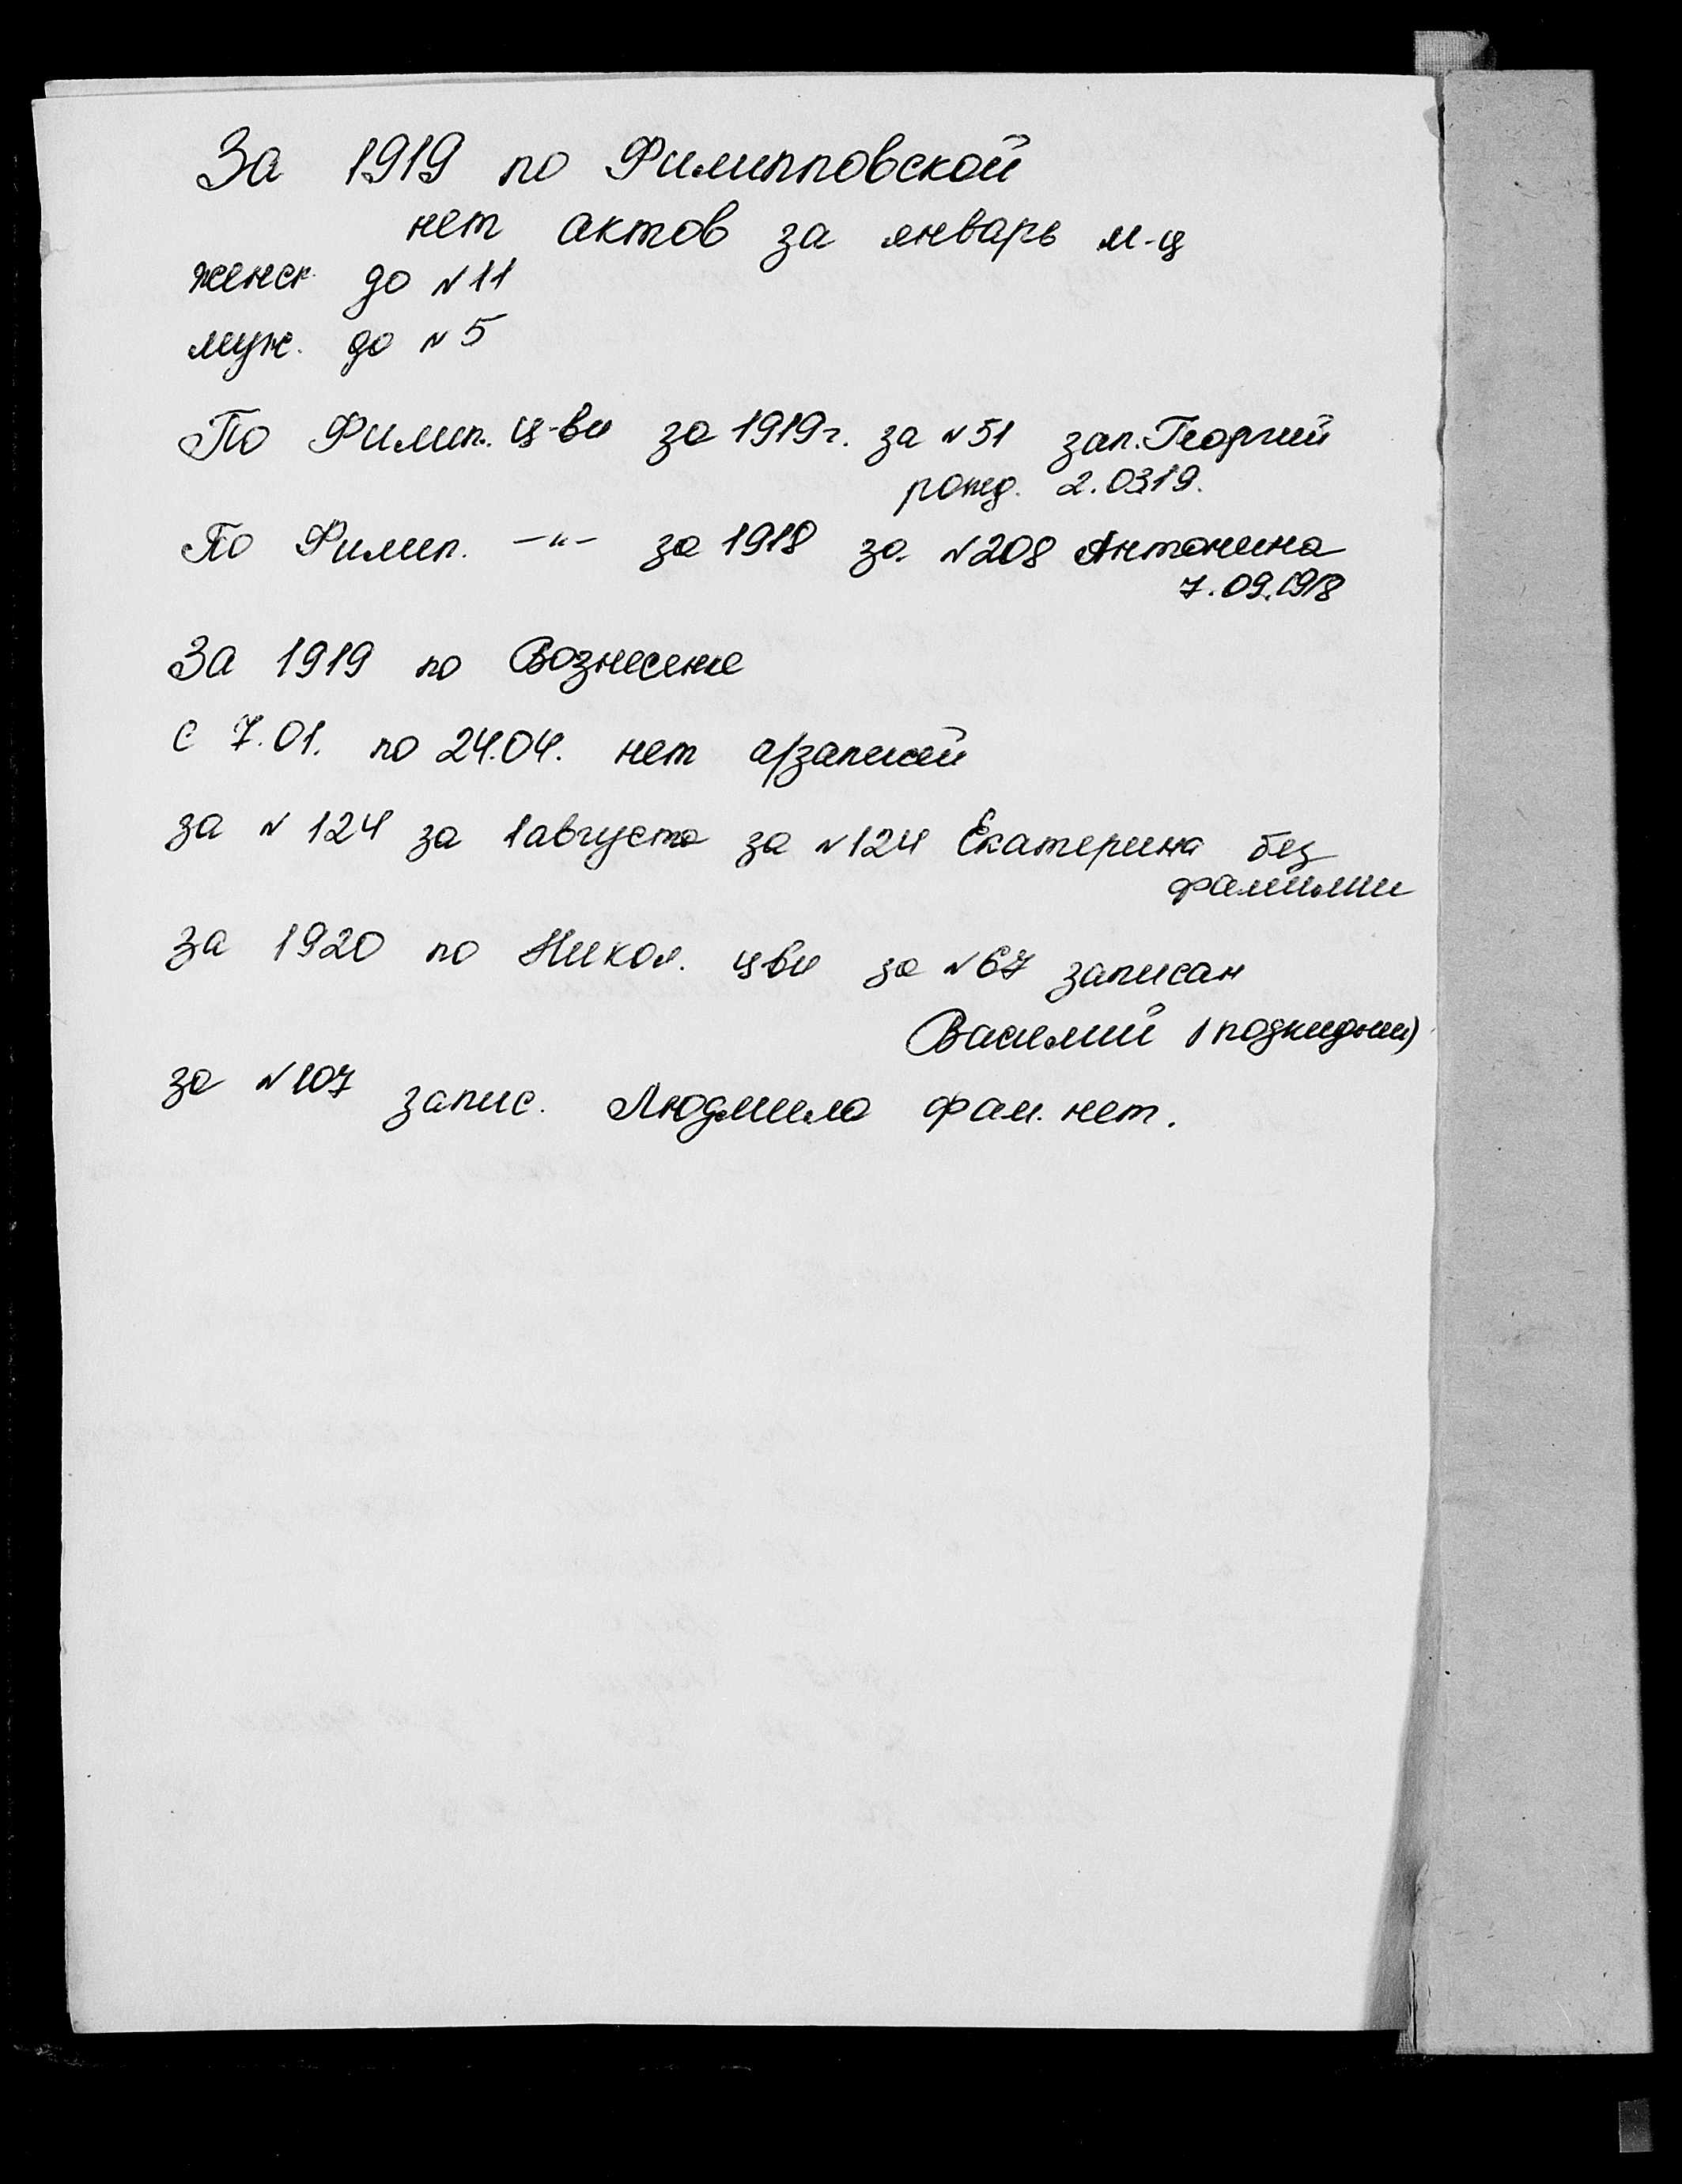 За 1919 по Филипповской
нет актов за январь м-ц
женск. до №11
муж. до №5
По Филип. ц-ви за 1919г. за №51 зап. Георгий
рожд. 2.0319.
По Филип. -"- за 1918 за №208 Антонина
7.09.1918
За 1919 по Вознесение
с 7.01. по 24.04. нет а/записей
за № 124 за 1 августа за №124 Екатерина без
фамилии
за 1920 по Никол. цви за №67 записан
Василий (подкидыш)
за №107 запис. Людмила фам. нет.